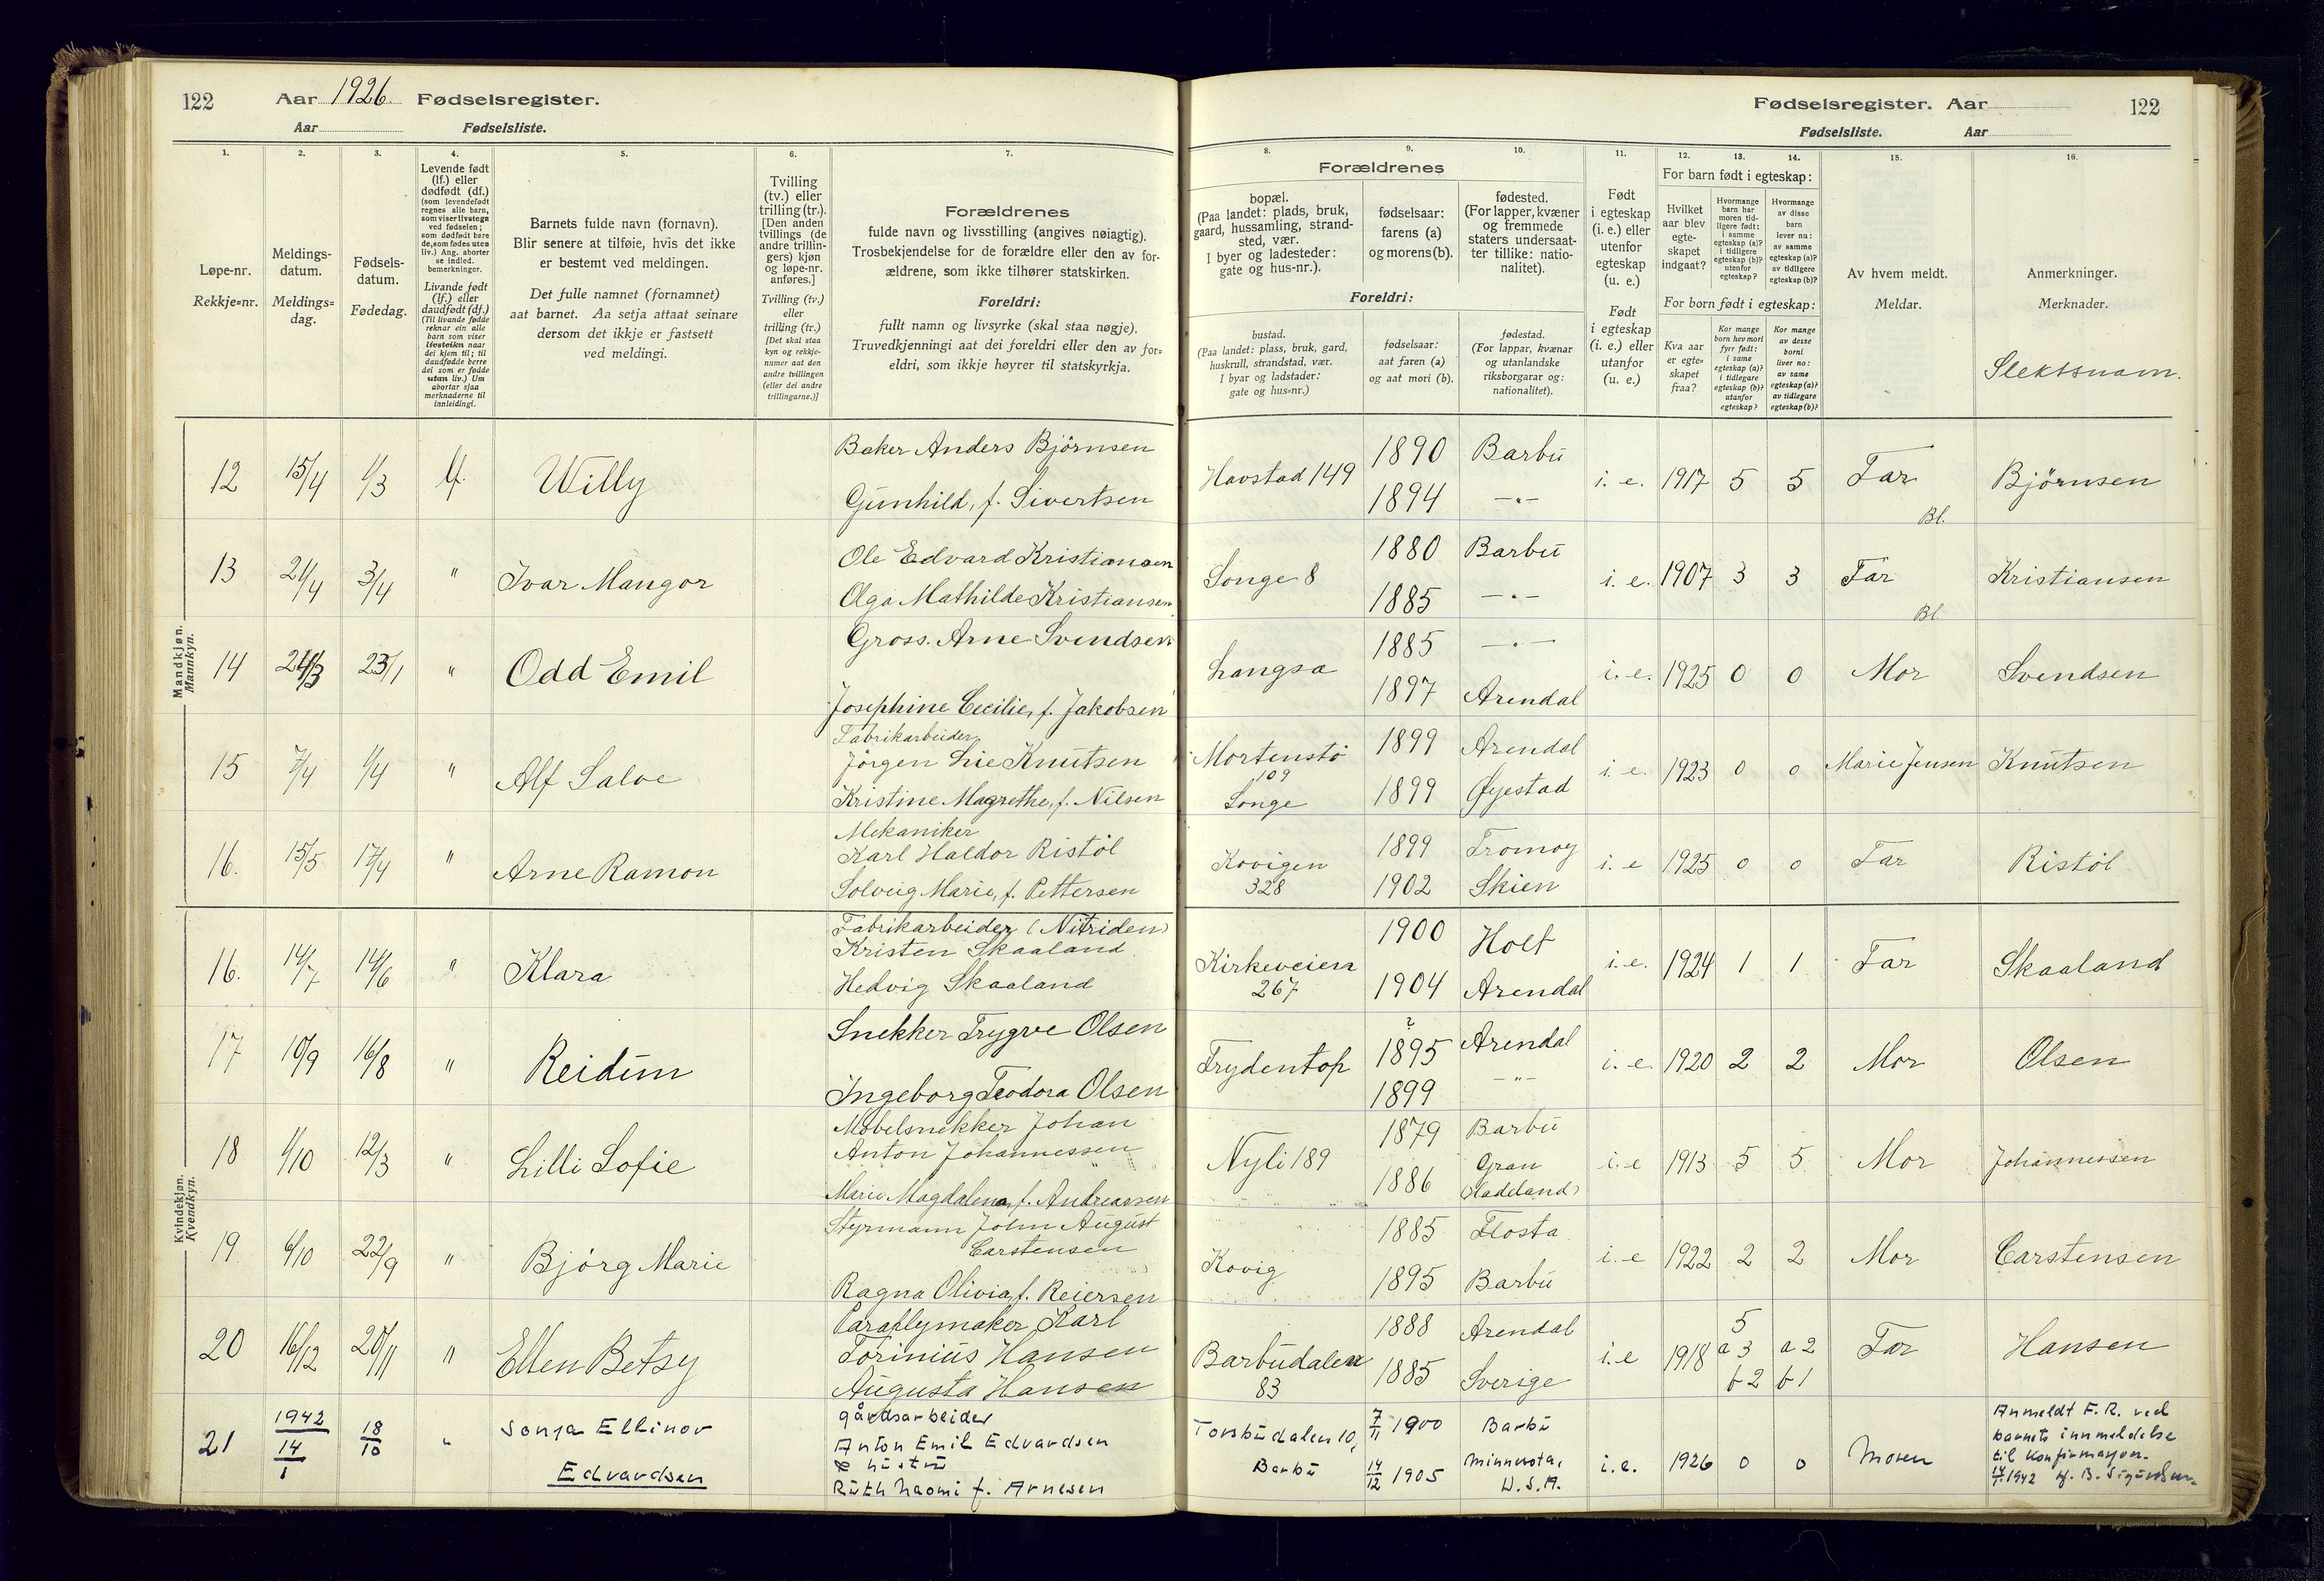 122 Aar 1926. Fødselsregister.
Aar Fødselsliste.
Fødselsregister. Aar 122
Fødselsliste. Aar
1. 2. 3. 4. 5. 6. 7. 8. 9. 10. 11. 12. 13. 14. 15. 16.
Løpe-nr.
Rekkje=nr.
Meldings-
datum.
Meldings=
dag.
Fødsels-
datum.
Fødedag.
Levende født
(lf.) eller
dødfødt (df.)
(som levendefødt
regnes alle barn,
som viser livstegn
ved fødselen;
som dødfødt bare
de, som fødes uten
liv.) Ang. aborter
se indled.
bemerkninger.
Livande født
(lf.) eller
daudfødt (df.)
(Til livande fødde
reknar ein alle
barn som viser
livsteikn naar
dei kjem til; til
daudfødde berre
dei som er fødde
utan liv.) Um
abortar sjaa
merknaderne til
innleidingi.
Barnets fulde navn (fornavn).
Blir senere at tilføie, hvis det ikke
er bestemt ved meldingen.
Det fulle namnet (fornamnet)
aat barnet. Aa setja attaat seinare
dersom det ikkje er fastsett
ved meldingi.
Tvilling
(tv.) eller
trilling (tr.).
[Den anden
tvillings (de
andre trillin-
gers) kjøn
og løpe-nr.
anføres.]
Tvilling (tv.)
eller
trilling (tr.)
[Det skal staa
kyn og rekkje-
numer aat den
andre tvillingen
(eller dei andre
trillingarne.)]
Forældrenes
fulde navn og livsstilling (angives nøiagtig).
Trosbekjendelse for de forældre eller den av for-
ældrene, som ikke tilhører statskirken.
Foreldri:
fullt namn og livsyrke (skal staa nøgje).
Truvedkjenningi aat dei foreldri eller den av for=
eldri, som ikkje høyrer til statskyrkja.
Forældrenes
bopæl.
(Paa landet: plads, bruk,
gaard, hussamling, strand-
sted, vær.
I byer og ladesteder:
gate og hus-nr.).
fødselsaar:
farens (a)
og morens (b).
fødested.
(For lapper, kvæner
og fremmede
staters undersaat-
ter tillike: natio-
nalitet).
Foreldri:
bustad.
(Paa landet: plass, bruk, gard,
huskrull, strandstad, vær.
I byar og ladstader:
gate og hus=nr.)
fødselsaar:
aat faren (a)
og aat mori (b).
fødestad.
(For lappar, kvænar
og utanlandske
riksborgarar og:
nationalitet).
Født
i egteskap
(i. e.) eller
utenfor
egteskap
(u. e.)
Født
i egteskap
(i. e.) eller
utanfor
(u. e.)
For barn født i egteskap:
Hvilket
aar blev
egte-
skapet
indgaat?
Hvormange
barn har
moren tid-
ligere født:
i samme
egteskap (a)?
i tidligere
egteskap (b)?
utenfor
egteskap?
Hvormange
av disse
barn
lever nu:
av samme
egteskap (a)?
av tidligere
egteskap (b)?
For born født i egteskap:
Kva aar
er egte=
skapet
fraa?
Kor mange
born hev mori
fyrr født:
i same
egteskap (a)?
i tidlegare
egteskap (b)?
utanfor
egteskap?
Kor mange
av desse
borni
liver no:
av same
egteskap (a)?
av tidlegare
egteskap (b)?
Av hvem meldt.
Meldar.
Anmerkninger.
Merknader.
Slektsnavn.
Mandkjøn.
Mannkyn.
12 15/4 1/3 lf. Willy Baker Anders Bjørnsen
Gunhild, f. Sivertsen
Havstad 149 1890 Barbu
1894 —"—
i. e. 1917 5 5 Far Bjørnsen
Bl.
13 21/4 3/4 " Ivar Mangor Ole Edvard Kristiansen
Olga Mathilde Kristiansen
Songe 8 1880 Barbu
1885 —"—
i. e. 1907 3 3 Far Kristiansen
Bl.
14 24/3 23/1 " Odd Emil Gross. Arne Svendsen
Josephine Cecilie, f. Jakobsen
Langsæ 1885 —"—
1897 Arendal
i. e. 1925 0 0 Mor Svendsen
15 7/4 1/4 " Alf Salve Fabrikarbeider
Jørgen Lie Knutsen
Kristine Magrethe, f. Nilsen
Mortenstø
109
Songe
1899 Arendal
1899 Øyestad
i. e. 1923 0 0 Marie Jensen Knutsen
16. 15/5 17/4 " Arne Ramon Mekaniker
Karl Haldor Ristøl
Solveig Marie, f. Pettersen
Kovigen
328
1899 Tromøy
1902 Skien
i. e 1925 0 0 Far Ristøl
Kvindekjøn.
Kvendkyn.
16. 14/7 14/6 " Klara Fabrikarbeider (Nitriden)
Kristen Skaaland
Hedvig Skaaland
Kirkeveien
267
1900 Holt
1904 Arendal
i. e. 1924 1 1 Far Skaaland
17 10/9 16/8 " Reidun Snekker Trygve Olsen
Ingeborg Teodora Olsen
Frydentop ? 1895 Arendal
1899 —"—
i. e. 1920 2 2 Mor Olsen
18 1/10 12/3 " Lilli Sofie Møbelsnekker Johan
Anton Johannessen
Marie Magdalena, f. Andreassen
Nyli 189 1879 Barbu
1886 Gran
(Hadeland)
i. e 1913 5 5 Mor Johannessen
19 6/10 22/9 " Bjørg Marie Styrmann John August
Carstensen
Ragna Olivia, f. Reiersen
Kovig 1885 Flosta
1895 Barbu
i. e 1922 2 2 Mor Carstensen
20 16/12 20/11 " Ellen Betsy Paraplymaker Karl
Torinius Hansen
Augusta Hansen
Barbudalen
83
1888 Arendal
1885 Sverige
i. e 1918 5
a 3 a 2
b 2 b 1
Far Hansen
21 1942
14/1 18/10 " Sonja Ellinor
Edvardsen
gårdsarbeider
Anton Emil Edvardsen
& hustru
Ruth Naomi f. Arnesen
Torsbudalen 10,
Barbu
7/11 1900 Barbu
14/12 1905 Minnesota,
U.S.A.
i. e. 1926 0 0 Moren
Anmeldt F. R. ved
barnets innmeldelse
til konfirmasjon.
14/1 1942